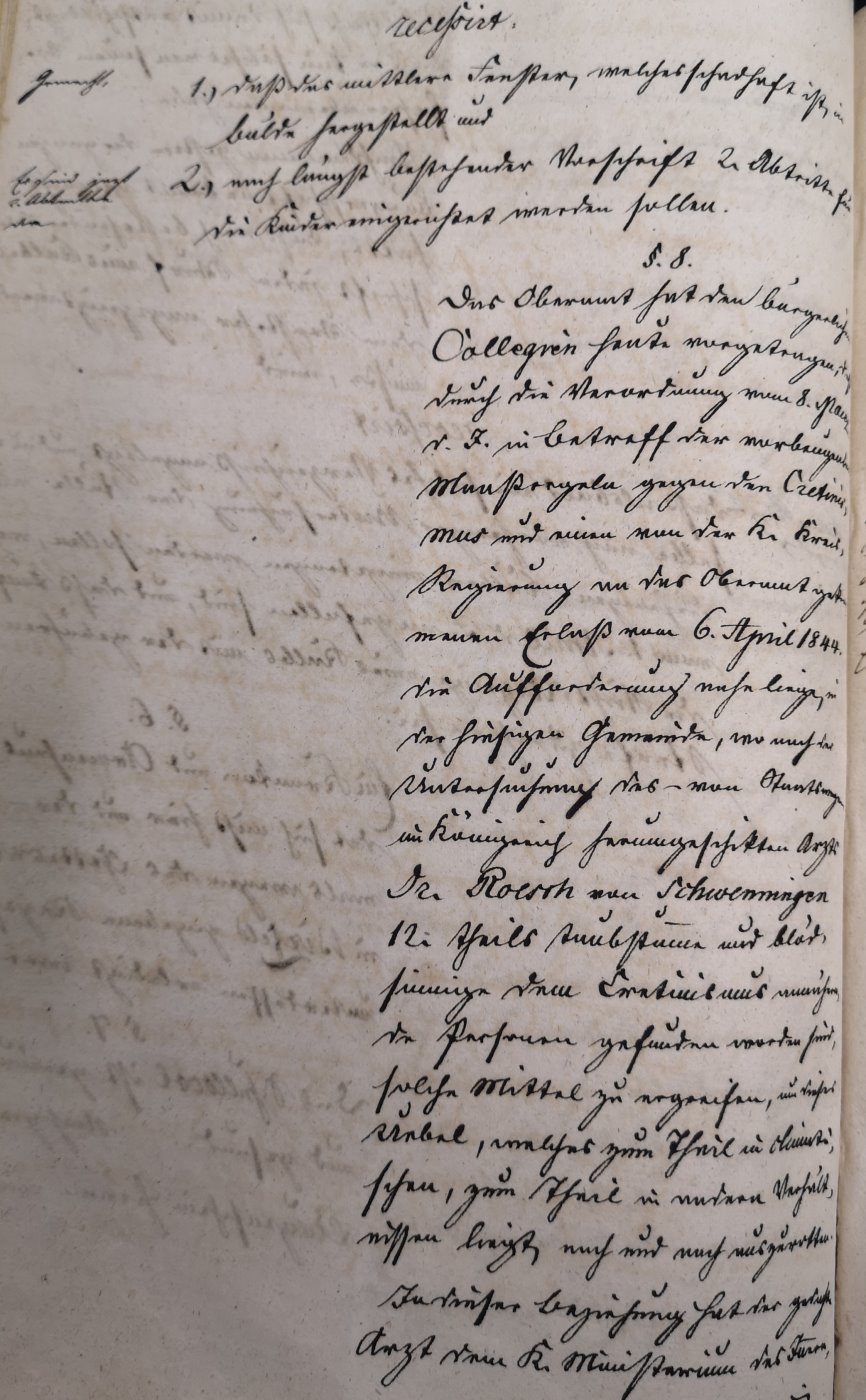 recessirt.
Gemacht.
1.) daß das mittlere Fenster, welches schadhaft ist, in
bälde hergestellt und
Es sind jezt
2. Abtritte
da
2.) nach längst bestehender Vorschrift 2. Abtritte für
die Kinder eingerichtet werden sollen.
§. 8.
Das Oberamt hat den bürgerlichen
Collegien heute vorgetragen, daß
durch die Verordnung vom 8. März
d. J. in Betreff der vorbeugenden
Maaßregeln gegen den Cretinis-
mus und einen von der K. Kreis-
Regierung an das Oberamt
menen Erlaß vom 6. April 1844.
die Aufforderung nahe liege, in
der hiesigen Gemeinde, wo nach der
Untersuchung des - von Staatswegen
im Königreich herumgeschikten Arzts
Dr. Roesch von Schwenningen
12. theils taubstumme und blöd-
sinnige dem Cretinismus annähern-
de Personen gefunden worden sind,
solche Mittel zu ergreifen, um dieses
Uebel, welches zum Theil in climati-
schen, zum Theil in andern Verhält-
nissen liegt, nach und nach auszurotten.
In dieser Beziehung hat der gedachte
Arzt dem K. Ministerium des Innern,